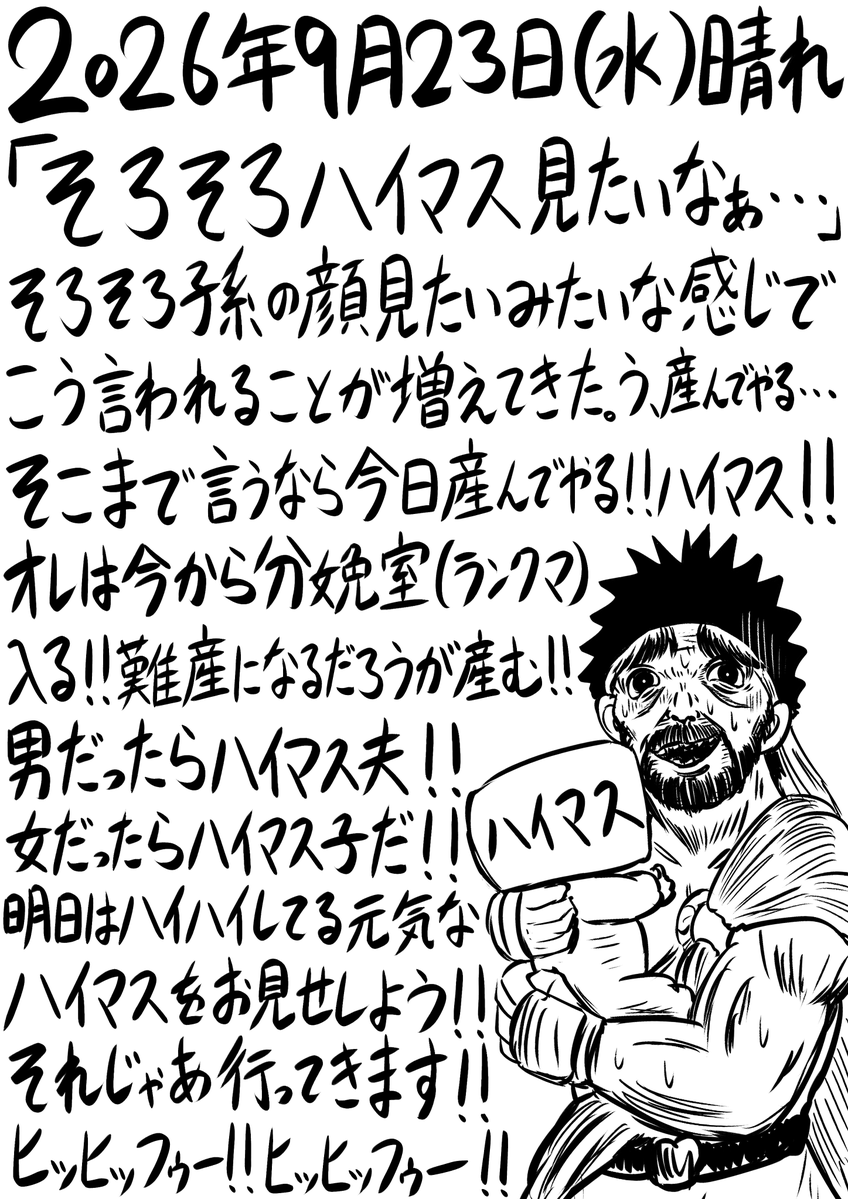 2026年9月23日(水)晴れ
「そろそろハイマス見たいなぁ…」
そろそろ子系の顔見たいみたいな感じで
こう言われることが増えてきた。う、産んでやる…
そこまで言うなら今日産んでやる!!ハイマス!!
オレは今から分娩室(ランクマ)
入る!!難産になるだろうが産む!!
男だったらハイマス夫!!
女だったらハイマス子だ!!
明日はハイハイしてる元気な
ハイマスをお見せしよう!!
それじゃあ行ってきます!!
ヒッヒッフゥー!!ヒッヒッフゥー!!
ハイマス